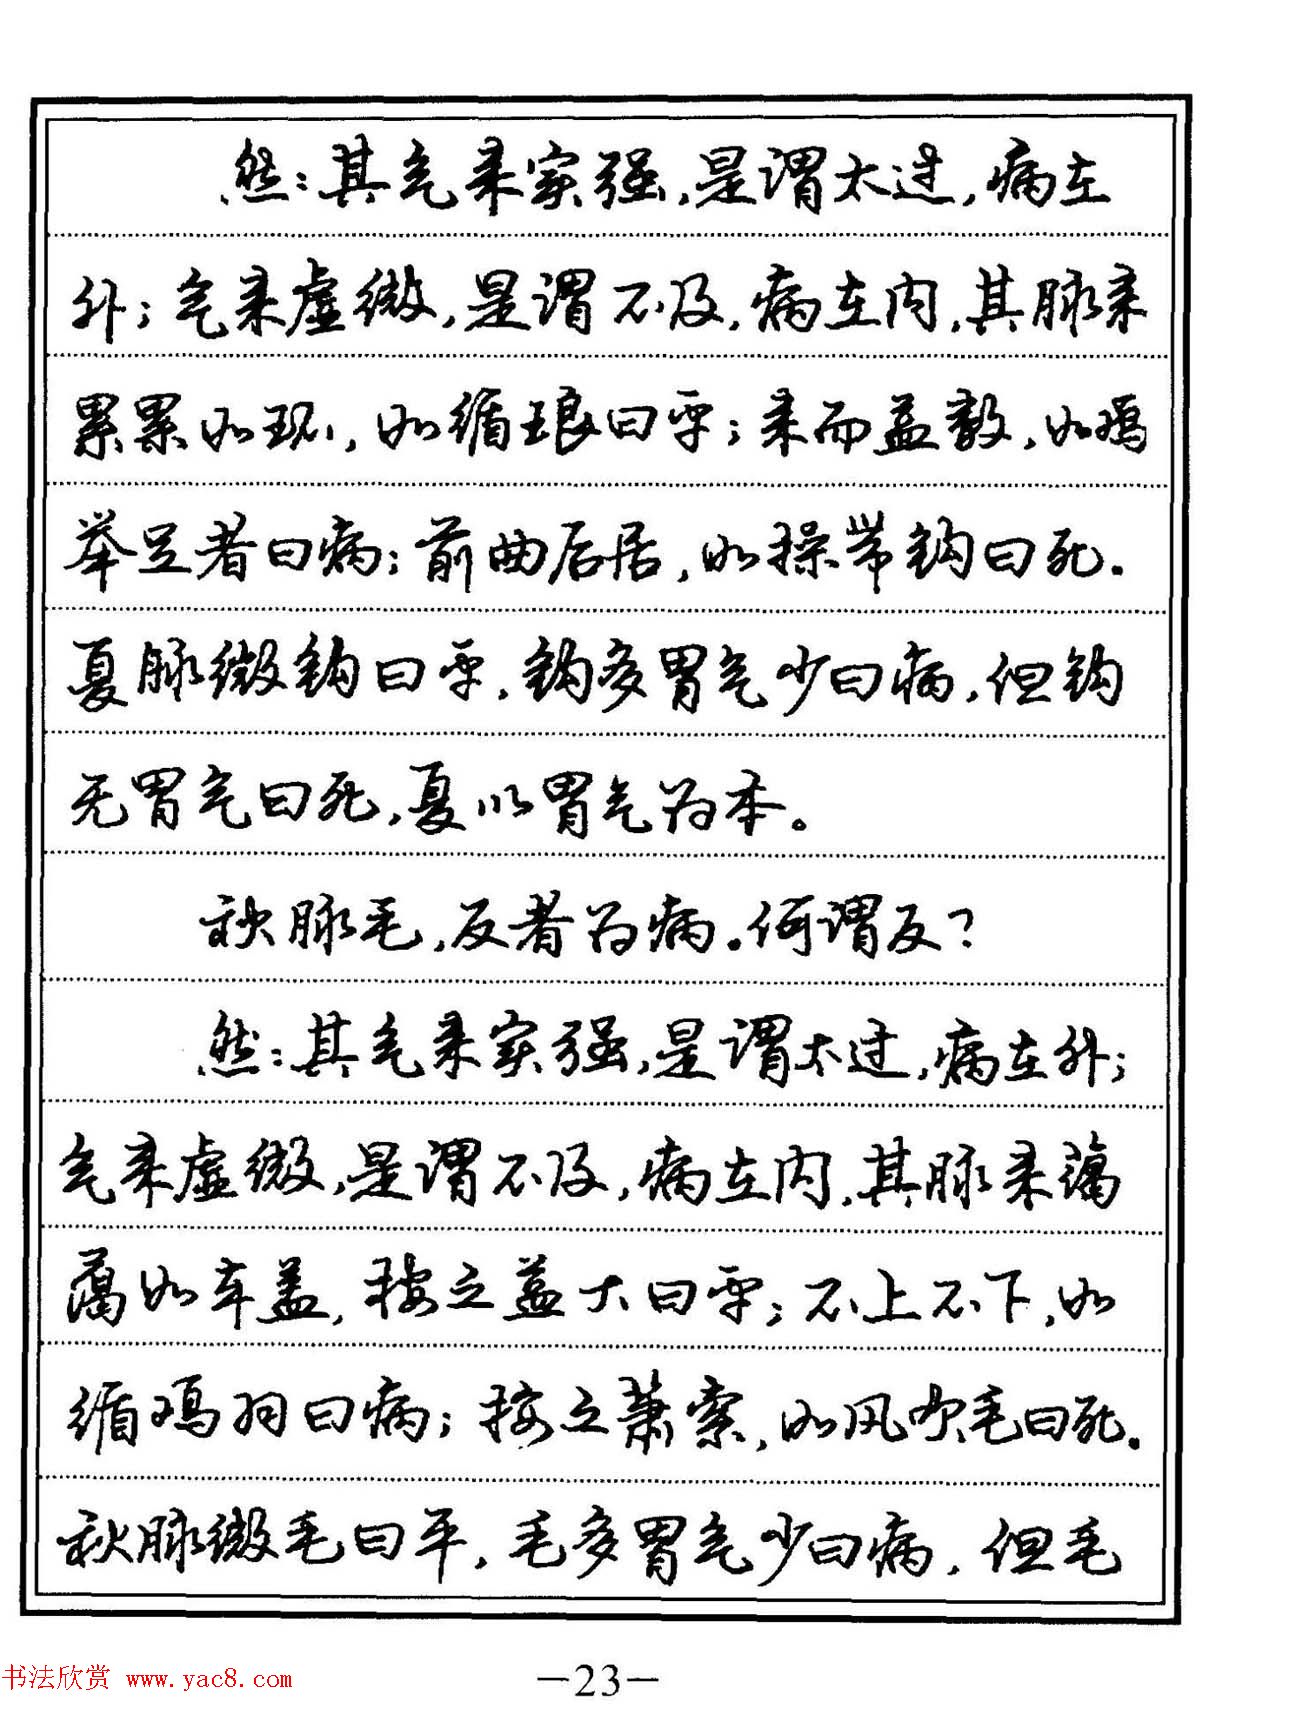 然:其气来实强,是谓太过,病在
外;气来虚微,是谓不及,病在内,其脉来
累累如环,如循琅曰平;来而益数,如鸡
举足者曰病;前曲后居,如操带钩曰死.
夏脉微钩曰平,钩多胃气少曰病,但钩
无胃气曰死,夏以胃气为本。
秋脉毛,反者为病.何谓反?
然:其气来实强,是谓太过,病在外;
气来虚微,是谓不及,病在内,其脉来蔼
蔼如车盖,按之益大曰平;不上不下,如
循鸡羽曰病;按之萧索,如风吹毛曰死.
秋脉微毛曰平,毛多胃气少曰病,但毛
书法欣赏 www.yac8.com
—23—